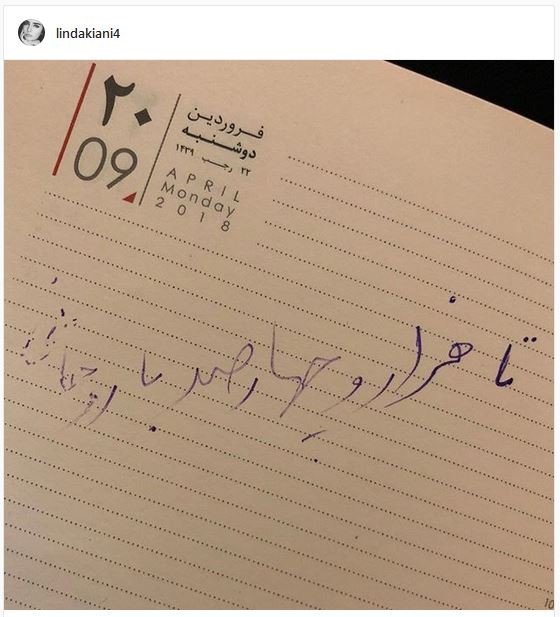 lindakiani4
۲۰
09
فروردین
دوشنبه
۲۲ رجب ۱۴۳۹
APRIL
Monday
2018
تا هزار و چهارصد با روحانی
10